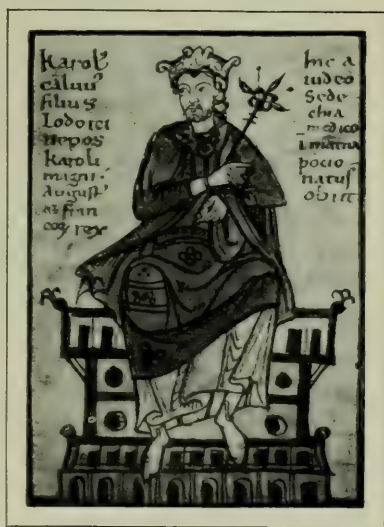 Karolꝰ
caluuꝰ
filius
Lodoici
nepos
Karoli
magni
Augustꝰ
& fran
coꝝ rex
hic a
iudeo
Sede
chia
medico
pocio
natus
obiit